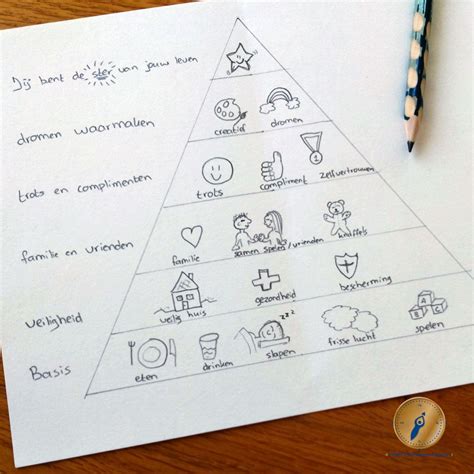 Jij bent de ster van jouw leven
dromen waarmaken
creatief dromen
trots en complimenten
trots compliment zelfvertrouwen
1
familie en vrienden
familie samen spelen/vrienden knuffels
veiligheid
veilig huis gezondheid bescherming
Basis
eten drinken slapen frisse lucht spelen
zzz